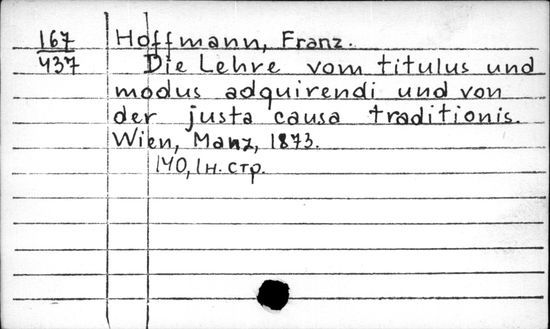 167
437
Hoffmann, Franz.
Die Lehre vom titulus und
modus adquirendi und von
der justa causa traditionis.
Wien, Manz, 1873.
140, 1 н. стр.